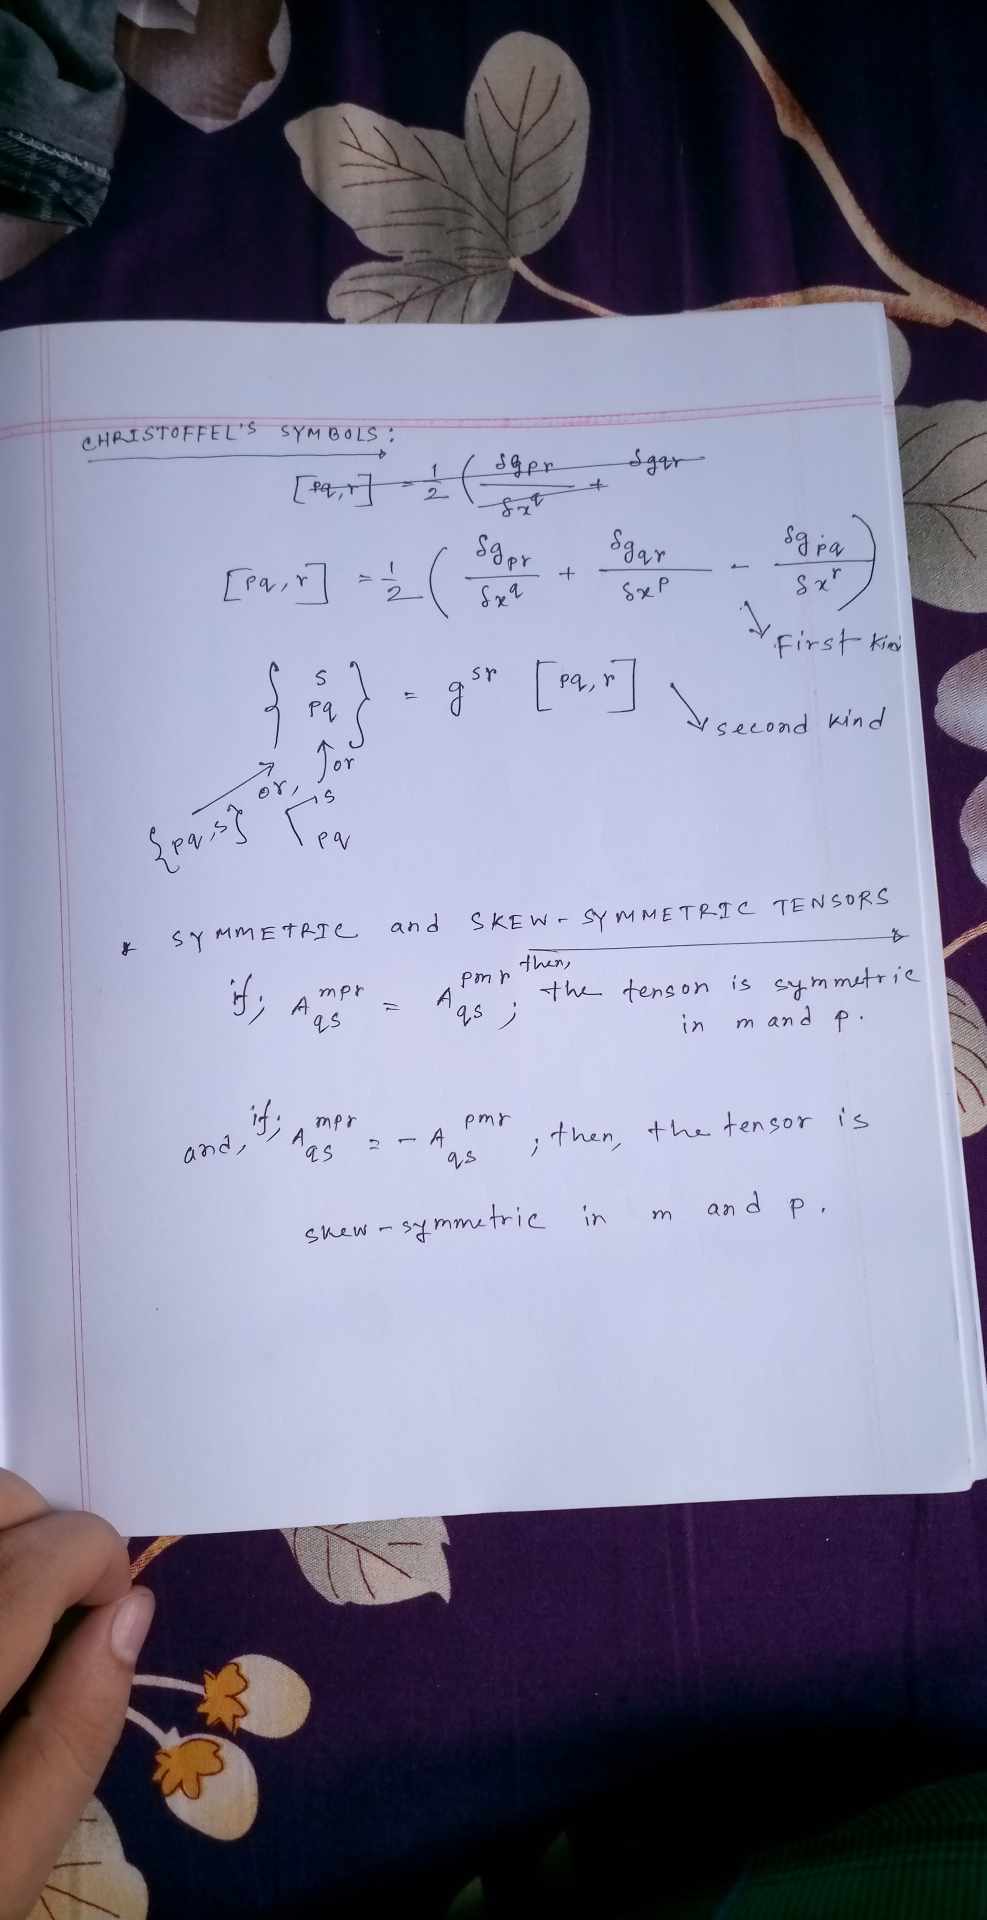 CHRISTOFFEL'S SYMBOLS:
[pq,r] = 1/2 ( δg_pr/δx^q + δg_qr
[pq,r] = 1/2 ( δg_pr/δx^q + δg_qr/δx^p - δg_pq/δx^r )
First kind
{ s pq } = g^sr [pq,r]
second kind
or
or,
{pq,s} Γ^s_pq
* SYMMETRIC and SKEW-SYMMETRIC TENSORS
if; A^mpr_qs = A^pmr_qs; then, the tensor is symmetric
in m and p.
and, if; A^mpr_qs = - A^pmr_qs; then, the tensor is
skew-symmetric in m and p.